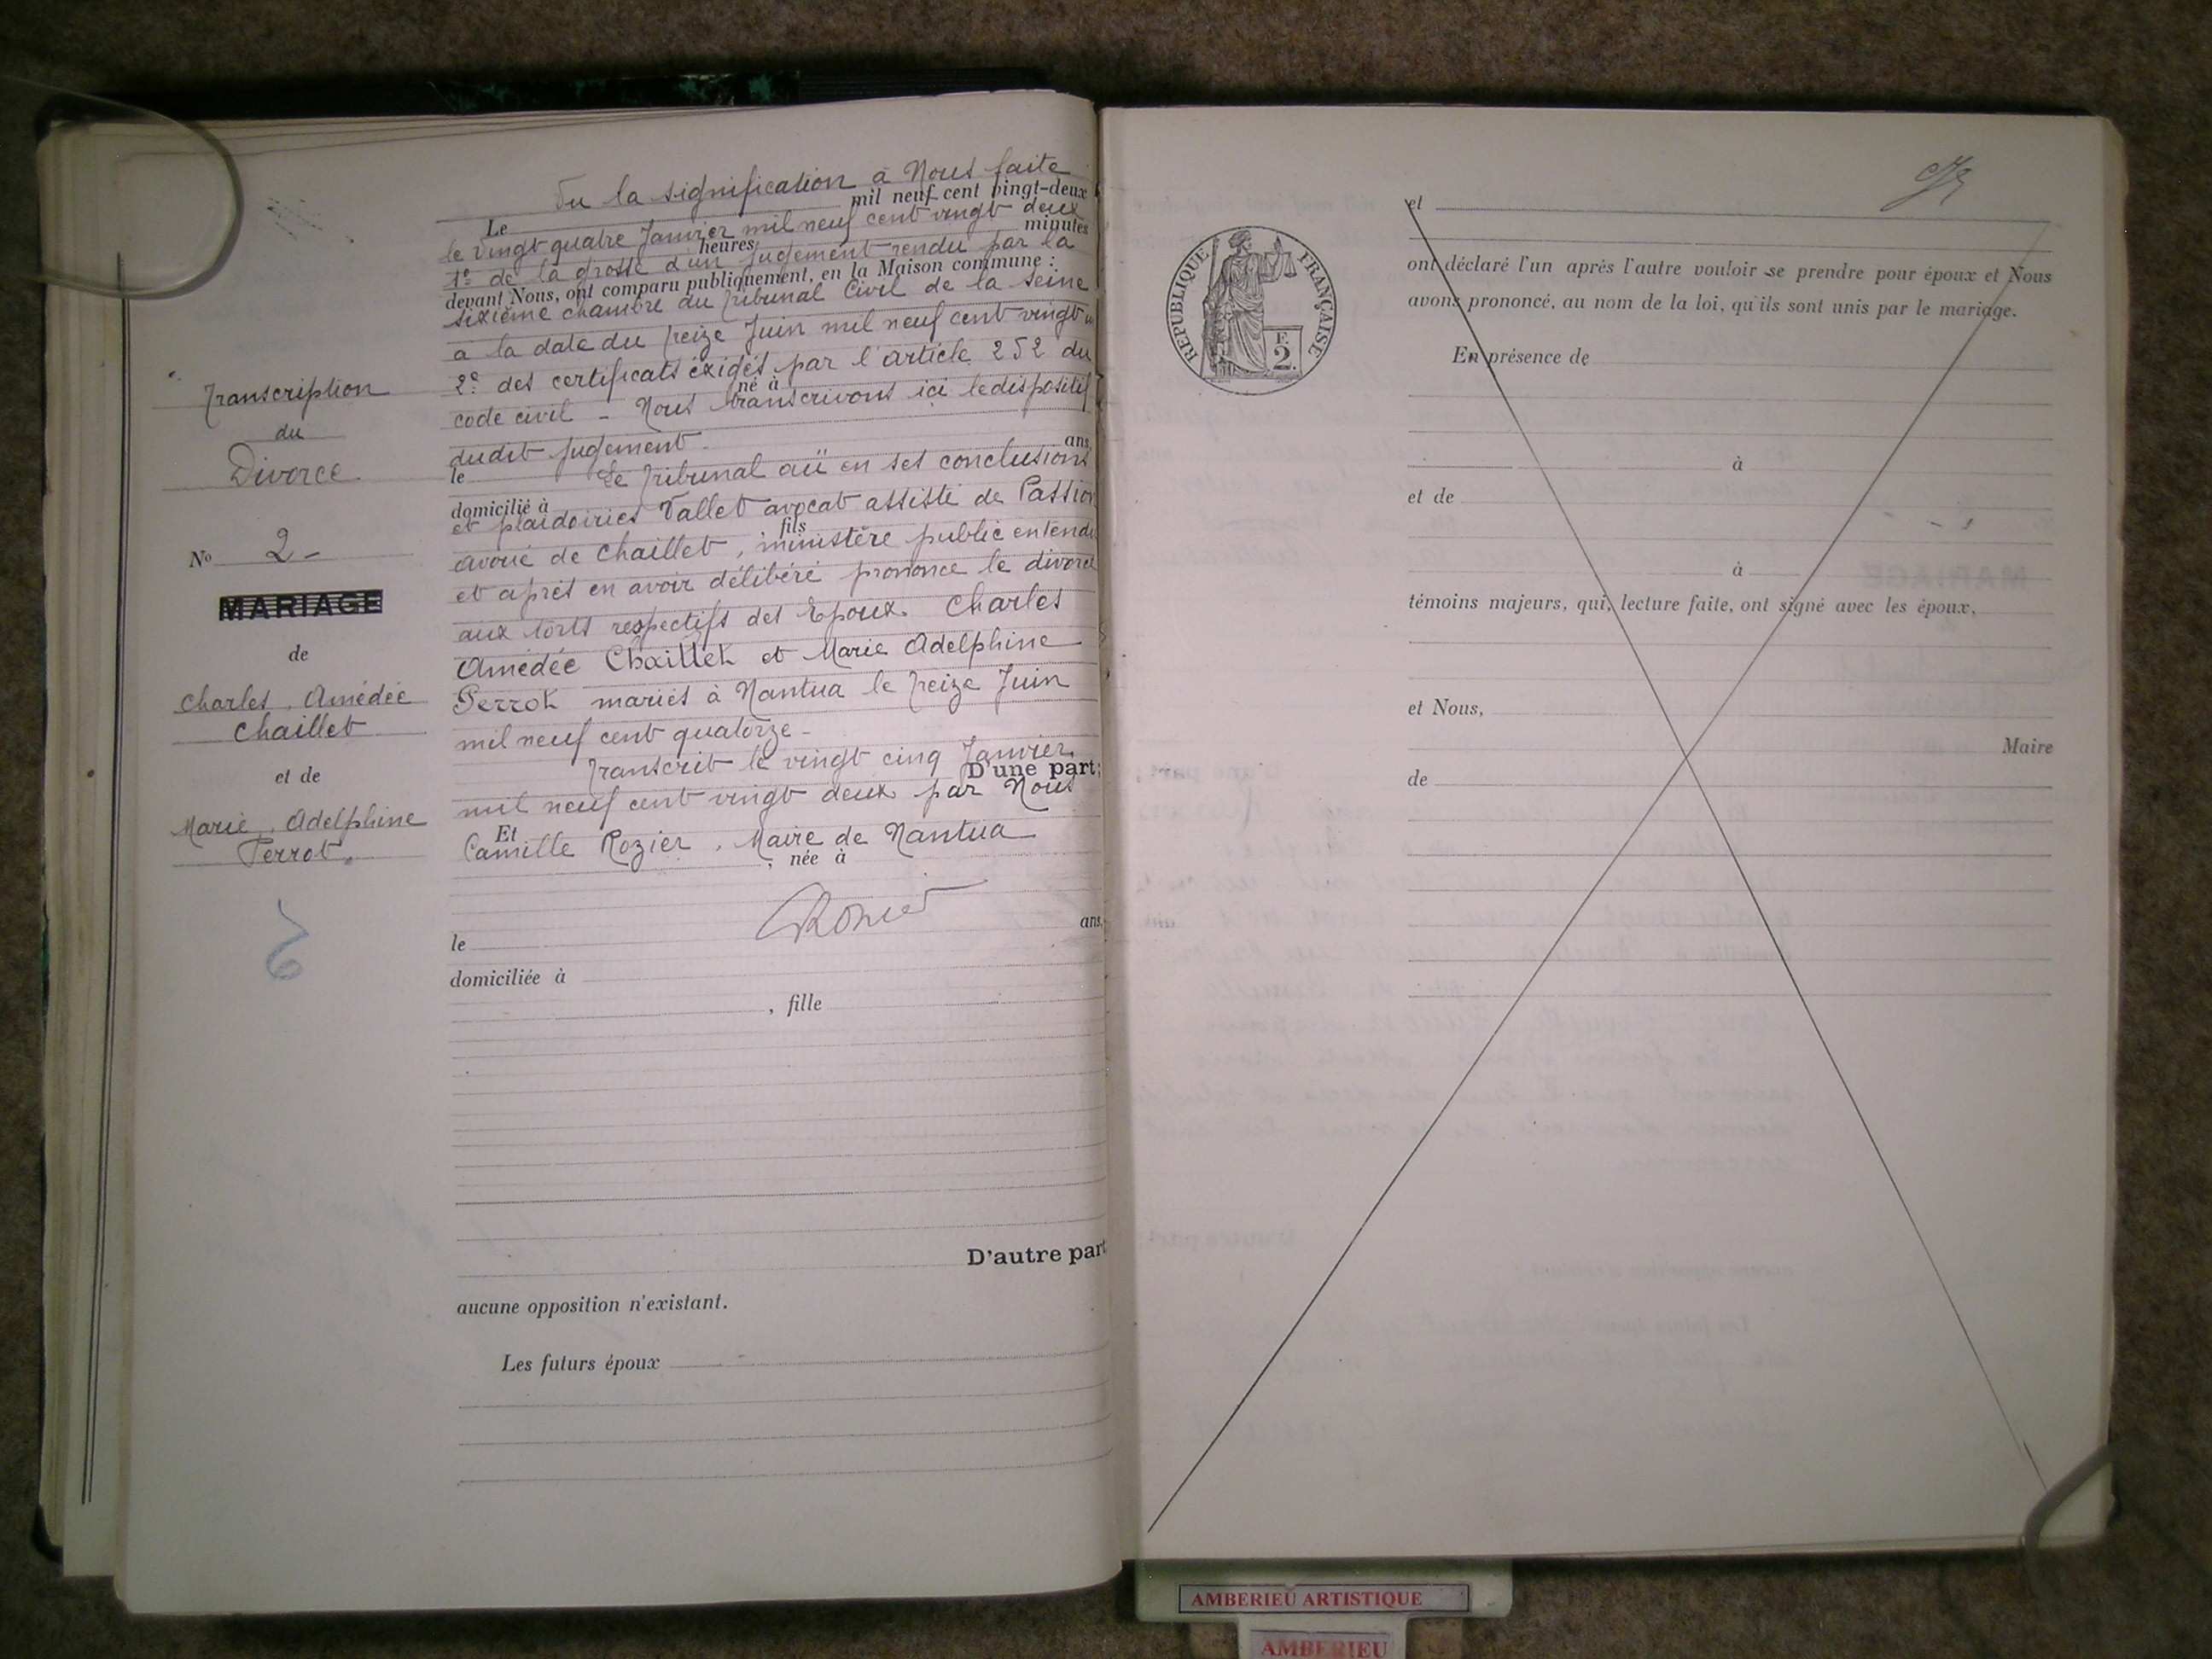 Transcription
du
Divorce
No 2 -
MARIAGE
de
Charles, Amédée
Chaillet
et de
Marie, Adelphine
Perrot.
Vu la signification à Nous faite
mil neuf cent vingt-deux
Le
le vingt quatre Janvier mil neuf cent vingt deux
heures, minutes
1º de la grosse d'un jugement rendu par la
devant Nous, ont comparu publiquement, en la Maison commune :
sixième chambre du Tribunal Civil de la Seine
a la date du treize Juin mil neuf cent vingt
2º des certificats éxigés par l'article 252 du
né à
code civil - Nous transcrivons ici le dispositif
dudit jugement.
ans,
le
Le Tribunal ouï en ses conclusions
domicilié à
et plaidoiries Vallet avocat assisté de Passion
fils
avoué de Chaillet, ministère public entendu
et après en avoir délibéré prononce le divorce
aux torts respectifs des Epoux Charles
Amédée Chaillet et Marie Adelphine
Perrot mariés à Nantua le treize Juin
mil neuf cent quatorze -
Transcrit le vingt cinq Janvier
D'une part ;
mil neuf cent vingt deux par Nous
Et
Camille Rozier, Maire de Nantua
, née à
CRozier
le ans,
domiciliée à
, fille
D'autre part
aucune opposition n'existant.
Les futurs époux
et
ont déclaré l'un après l'autre vouloir se prendre pour époux et Nous
avons prononcé, au nom de la loi, qu'ils sont unis par le mariage.
RÉPUBLIQUE FRANÇAISE
F.
2.
En présence de
à
et de
à
témoins majeurs, qui, lecture faite, ont signé avec les époux,
et Nous,
Maire
de
AMBERIEU ARTISTIQUE
AMBERIEU